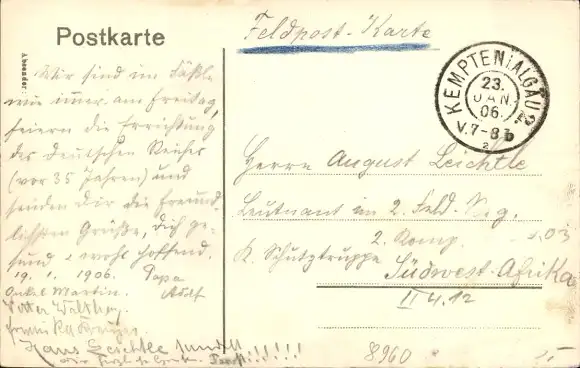 Postkarte
Feldpost-Karte
Absender:
KEMPTEN (ALGÄU) 2.
23.
JAN.
06.
V. 7-8
Wir sind im Fäßle
wie immer am Freitag,
feiern die Errichtung
des Deutschen Reiches
(vor 35 Jahren) und
senden Dir die freund-
lichsten Grüße, Dich ge-
sund & wohl hoffend.
19. 1. 1906. Papa
Onkel Martin. Adolf
Vetter
Hans Leichtle
Prosit!!!!!!
Herrn August Leichtle
Leutnant im 2. Feld-Reg.
2. Komp.
K. Schutztruppe
Südwest-Afrika
II 4.12
8960